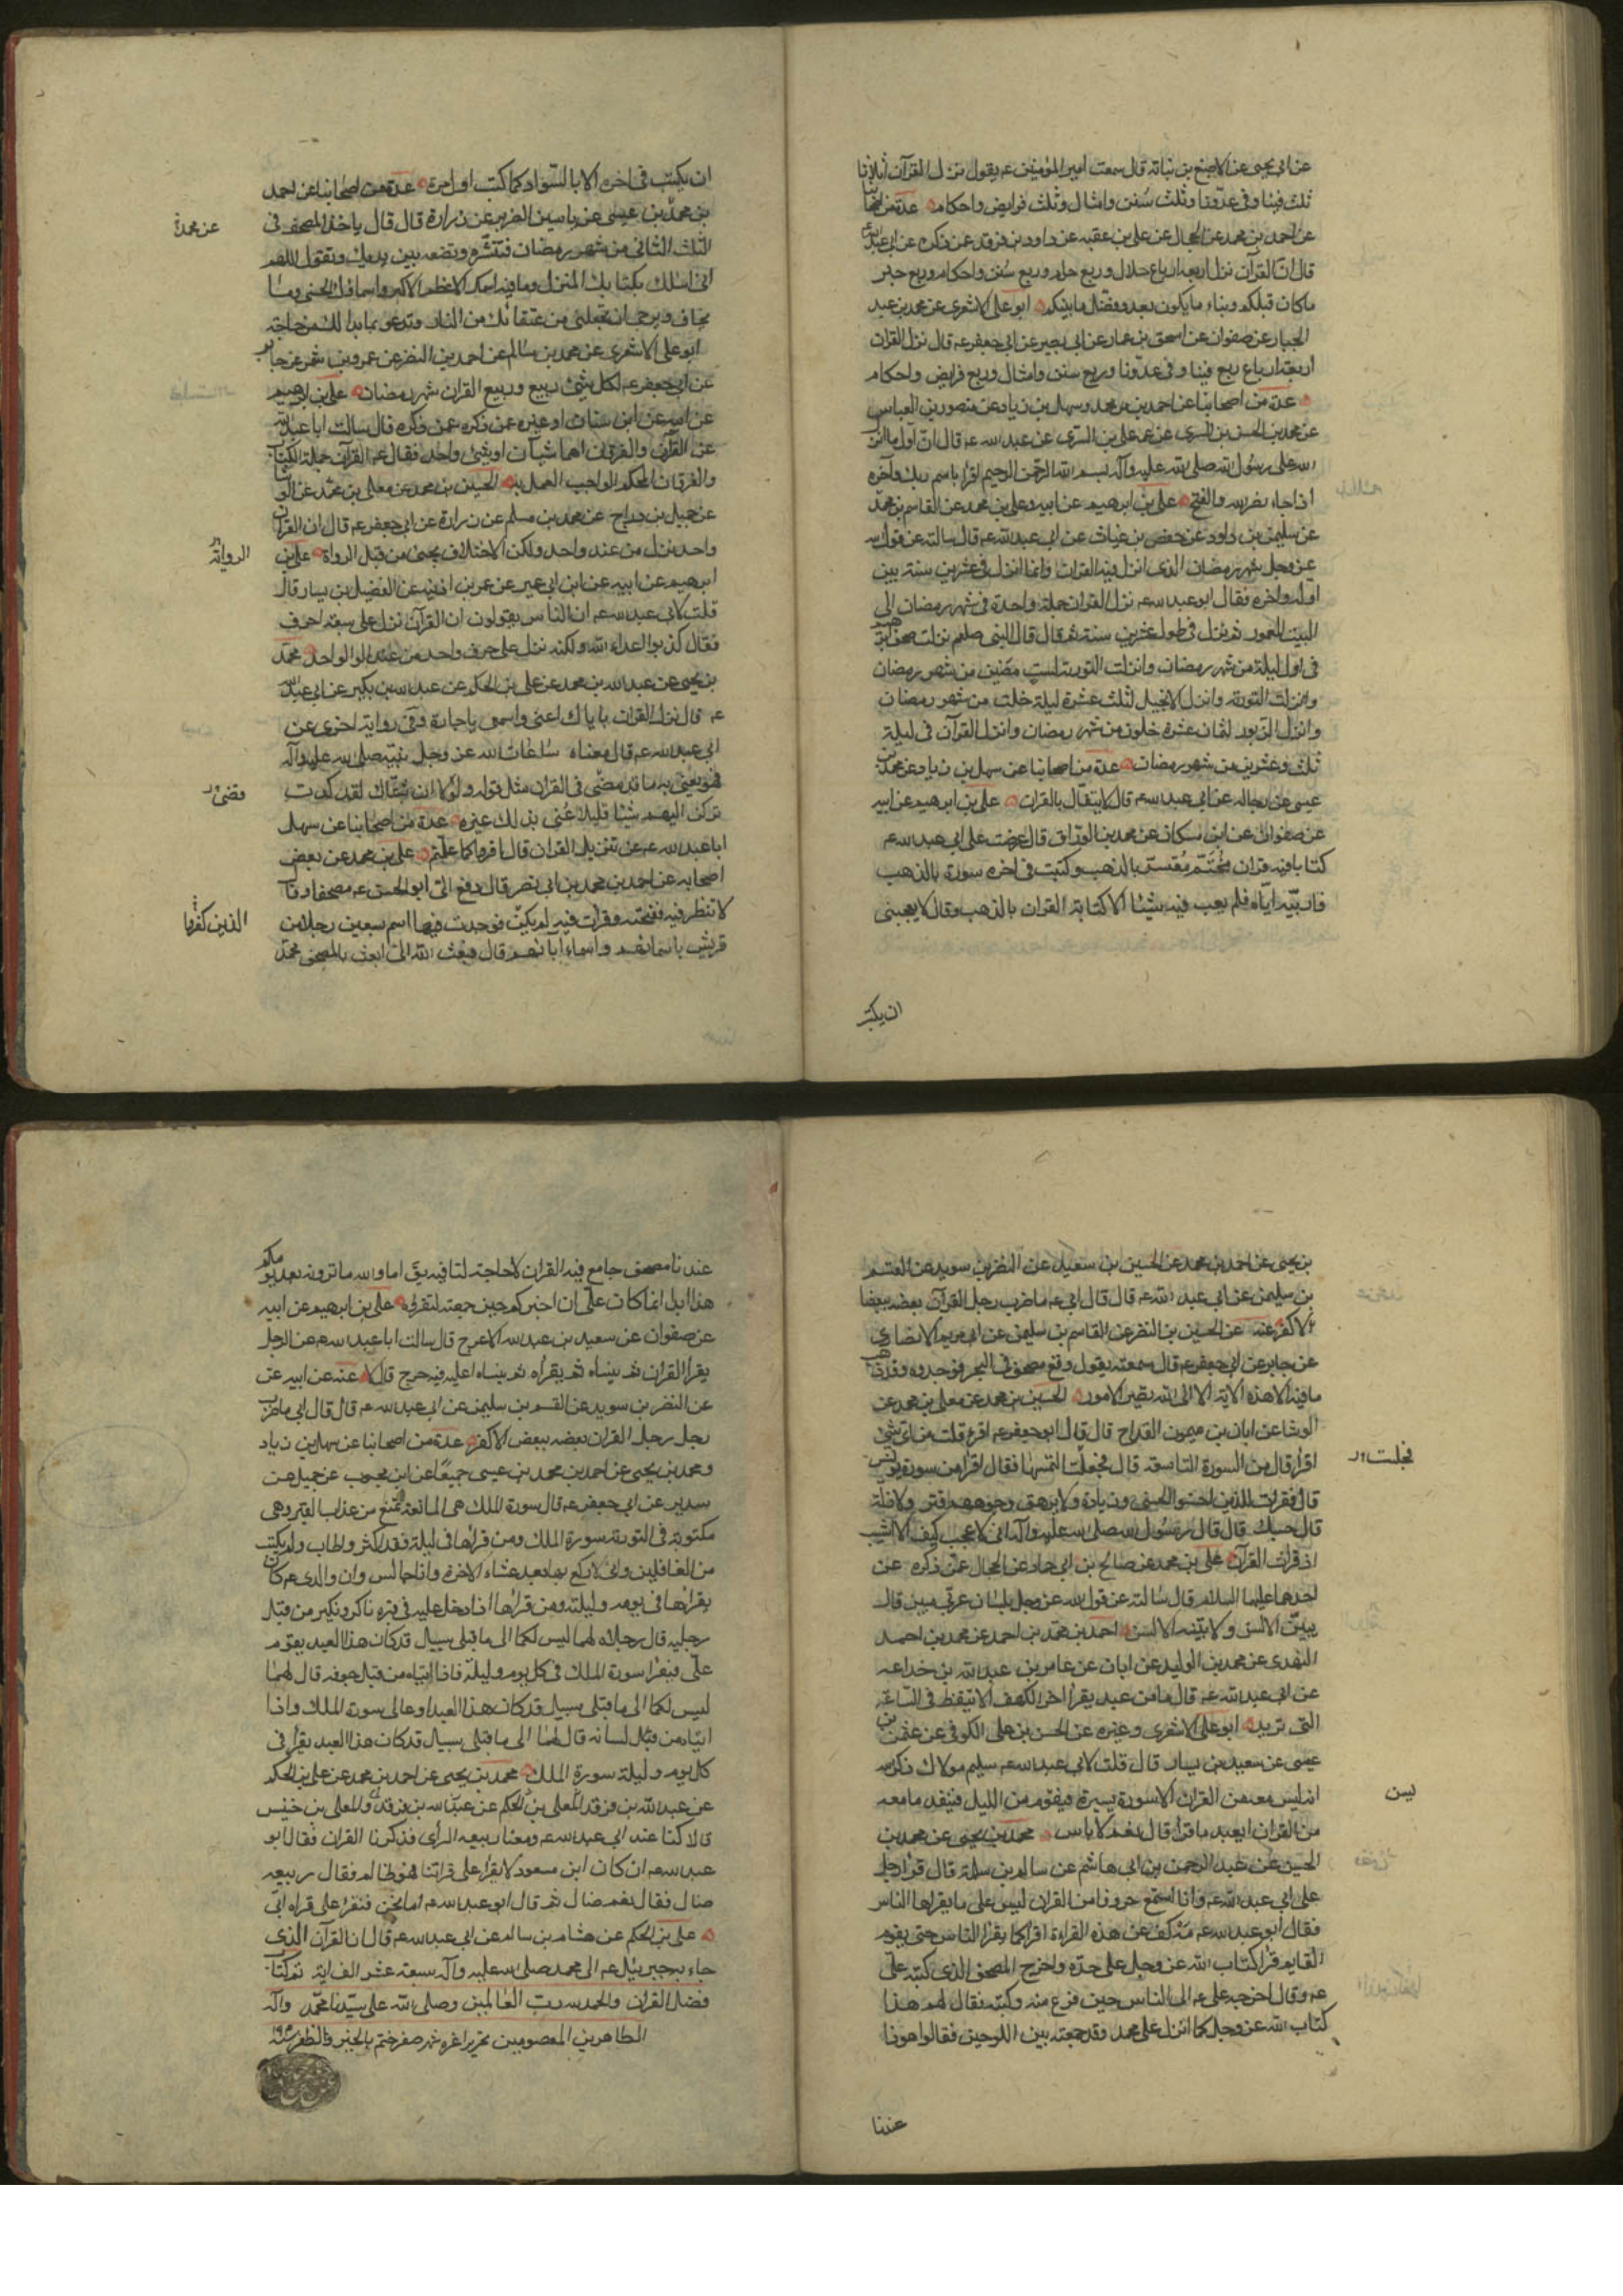 عن ابي يحيى عن الاصبغ بن نباتة قال سمعت امير المؤمنين عم يقول نزل القرآن اثلاثا
ثلث فينا وفي عدونا وثلث سنن وامثال وثلث فرايض واحكام عدة من اصحابنا
عن احمد بن محمد عن الحجال عن علي بن عقبه عن داود بن فرقد عمن ذكره عن ابي عبد الله
قال ان القرآن نزل اربعة ارباع حلال وربع حرام وربع سنن واحكام وربع خبر
ما كان قبلكم ونباء ما يكون بعدكم وفصل ما بينكم ابو علي الاشعري عن محمد بن عبد
الجبار عن صفوان عن اسحق بن عمار عن ابي بصير عن ابي جعفر عم قال نزل القران
اربعة ارباع ربع فينا وفي عدونا وربع سنن وامثال وربع فرايض واحكام
عدة من اصحابنا عن احمد بن محمد وسهل بن زياد عن منصور بن العباس
عن محمد بن الحسن بن السري عن عمه علي بن السري عن عبد الله عم قال ان اول ما انزل
الله على رسول الله صلى الله عليه وآله بسم الله الرحمن الرحيم اقرا باسم ربك وآخره
اذا جاء نصر الله والفتح علي بن ابرهيم عن ابيه وعلي بن محمد عن القاسم بن محمد
عن سليمن بن داود عن حفص بن غياث عن ابي عبد الله عم قال سالته عن قول الله
عز وجل شهر رمضان الذي انزل فيه القران وانما انزل في عشرين سنة بين
اوله واخره فقال ابو عبد الله عم نزل القران جملة واحدة في شهر رمضان الى
البيت المعمور ثم نزل في طول عشرين سنة ثم قال قال النبي صلعم نزلت صحف ابرهيم
في اول ليلة من شهر رمضان وانزلت التورية لست مضين من شهر رمضان
وانزلت التورية وانزل الانجيل لثلث عشرة ليلة خلت من شهر رمضان
وانزل الزبور لثمان عشرة خلون من شهر رمضان وانزل القرآن في ليلة
ثلث وعشرين من شهر رمضان عدة من اصحابنا عن سهل بن زياد عن محمد بن
عيسى عن رجاله عن ابي عبد الله عم قال لا يتفال بالقران علي بن ابرهيم عن ابيه
عن صفوان عن ابن مسكان عن محمد بن الوراق قال عرضت على ابي عبد الله عم
كتابا فيه قران مختم معشر بالذهب وكتبت في اخره سورة بالذهب
فاريته اياه فلم يعب فيه شيئا الا كتابة القران بالذهب وقال لا يعجبني
ان يكتب
ان يكتب في اخره الا بالسواد كما كتب اول مرة عدة من اصحابنا عن احمد
بن محمد بن عيسى عن ياسين الضرير عن زرارة قال قال ياخذ المصحف في
عن محمد
الثلث الثاني من شهر رمضان فتنشره وتضعه بين يديك وتقول اللهم
اني اسئلك بكتابك المنزل وما فيه اسمك الاعظم الاكبر واسماؤك الحسنى وما
يخاف ويرجى ان تجعلني من عتقائك من النار وتدعو بما بدا لك من حاجة
ابو علي الاشعري عن محمد بن سالم عن احمد بن النضر عن عمرو بن شمر عن جابر
عن ابي جعفر عم لكل شيئ ربيع وربيع القران شهر رمضان علي بن ابرهيم
عن ابيه عن ابن سنان او غيره عمن ذكره قال سالت ابا عبد الله
عن القرآن والفرقان اهما شيآن او شيئ واحد فقال عم القرآن جملة الكتاب
والفرقان المحكم الواجب العمل به الحسين بن محمد عن معلى بن محمد عن الوشا
عن جميل بن دراج عن محمد بن مسلم عن زرارة عن ابي جعفر عم قال ان القران
واحد نزل من عند واحد ولكن الاختلاف يجيئ من قبل الرواة علي بن
الرواية
ابرهيم عن ابيه عن ابن ابي عمير عن عمر بن اذينه عن الفضيل بن يسار قال
قلت لابي عبد الله عم ان الناس يقولون ان القرآن نزل على سبعة احرف
فقال كذبوا اعداء الله ولكنه نزل على حرف واحد من عند الواحد محمد
بن يحيى عن عبد الله بن محمد عن علي بن الحكم عن عبد الله بن بكير عن ابي عبد الله
عم قال نزل القران باياك اعني واسمعي يا جارة وفي رواية اخرى عن
ابي عبد الله عم قال معناه ما عاتب الله عز وجل نبيه صلى الله عليه وآله
فهو يعني به ما قد مضى في القران مثل قوله ولولا ان ثبتناك لقد كدت
قضى
تركن اليهم شيئا قليلا عنى بذلك غيره عدة من اصحابنا عن سهل
ابا عبد الله عم عن تنزيل القران قال اقرؤا كما علمتم علي بن محمد عن بعض
اصحابه عن احمد بن محمد بن ابي نصر قال دفع الي ابو الحسن عم مصحفا وقال
لا تنظر فيه ففتحته وقرات فيه لم يكن فوجدت فيها اسم سبعين رجلا من
الذين كفروا
قريش باسمائهم واسماء آبائهم قال فبعث الي ابعث بالمصحف محمد
بن يحيى عن احمد بن محمد عن الحسين بن سعيد عن النضر بن سويد عن القسم
بن سليمن عن ابي عبد الله عم قال قال ابي عم ما ضرب رجل القرآن بعضه ببعض
الا كفر عنه عن الحسين بن النضر عن القاسم بن سليمن عن ابي مريم الانصاري
عن جابر عن ابي جعفر عم قال سمعته يقول وقع مصحف في البحر فوجدوه وقد ذهب
ما فيه الا هذه الآية الا الى الله تصير الامور الحسين بن محمد عن معلى بن محمد عن
الوشا عن ابان بن ميمون القداح قال قال ابو جعفر عم اقرا قلت من اي شيئ
اقرا قال من السورة التاسعة قال فجعلت التمسها فقال اقرا من سورة يونس
فجلت
قال فقرات للذين احسنوا الحسنى وزيادة ولا يرهق وجوههم قتر ولا ذلة
قال حسبك قال قال رسول الله صلى الله عليه وآله اني لاعجب كيف لا اشيب
اذ قرات القرآن علي بن محمد عن صالح بن ابي حماد عن الحجال عمن ذكره عن
احدهما عليهما السلام قال سالته عن قول الله عز وجل بلسان عربي مبين قال
يبين الالسن ولا تبينه الالسن احمد بن محمد بن احمد عن محمد بن احمد
النهدي عن محمد بن الوليد عن ابان عن عامر بن عبد الله بن خداعه
عن ابي عبد الله عم قال ما من عبد يقرا اخر الكهف الا تيقظ في الساعة
التي تريد ابو علي الاشعري وغيره عن الحسن بن علي الكوفي عن عثمن بن
عيسى عن سعيد بن يسار قال قلت لابي عبد الله عم سليم مولاك ذكر
انه ليس معه من القران الا سورة يسيرة فيقوم من الليل فينفد ما معه
ليس
من القران ايعيد ما قرا قال نعم لا باس محمد بن يحيى عن محمد بن
الحسين عن عبد الرحمن بن ابي هاشم عن سالم بن سلمة قال قرا رجل
على ابي عبد الله عم وانا استمع حروفا من القران ليس على ما يقراها الناس
فقال ابو عبد الله عم مه كف عن هذه القراءة اقرا كما يقرا الناس حتى يقوم
القايم قرا كتاب الله عز وجل على حده واخرج المصحف الذي كتبه علي
عم وقال اخرجه علي عم الى الناس حين فرغ منه وكتبه فقال لهم هذا
كتاب الله عز وجل كما انزل على محمد وقد جمعته بين اللوحين فقالوا هوذا
عندنا
عندنا مصحف جامع فيه القران لا حاجة لنا فيه قال اما والله ما ترونه بعد يومكم
هذا ابدا انما كان علي ان اخبركم حين جمعته لتقرؤه علي بن ابرهيم عن ابيه
عن صفوان عن سعيد بن عبد الله الاعرج قال سالت ابا عبد الله عم عن الرجل
يقرا القران ثم ينساه ثم يقراه ثم ينساه اعليه فيه حرج قال لا عنه عن ابيه عن
النضر بن سويد عن القسم بن سليمن عن ابي عبد الله عم قال قال ابي ما ضرب
رجل القران بعضه ببعض الا كفر عدة من اصحابنا عن سهل بن زياد
ومحمد بن يحيى عن احمد بن محمد بن عيسى جميعا عن ابن محبوب عن جميل عن
سدير عن ابي جعفر عم قال سورة الملك هي المانعة تمنع من عذاب القبر وهي
مكتوبة في التورية سورة الملك ومن قراها في ليلة فقد اكثر واطاب ولم يكتب
من الغافلين واني لاركع بها بعد عشاء الاخرة وانا جالس وان والدي عم كان
يقراها في يومه وليلته ومن قراها اذا دخل عليه في قبره ناكر ونكير من قبل
رجليه قال رجلاه لهما ليس لكما الى ما قبلي سبيل قد كان هذا العبد يقوم
علي فيقرا سورة الملك في كل يوم وليلة فاذا اتياه من قبل جوفه قال لهما
ليس لكما الى ما قبلي سبيل قد كان هذا العبد اوعاني سورة الملك واذا
اتياه من قبل لسانه قال لهما الى ما قبلي سبيل قد كان هذا العبد يقرا في
كل يوم وليلة سورة الملك محمد بن يحيى عن احمد بن محمد عن علي بن الحكم
عن عبد الله بن فرقد المعلى بن الحكم عن عبد الله بن فرقد والمعلى بن خنيس
قالا كنا عند ابي عبد الله عم ومعنا ربيعه الراى فذكرنا القران فقال ابو
عبد الله عم ان كان ابن مسعود لا يقرا على قراتنا فهو ضال فقال ربيعه
ضال فقال نعم ضال ثم قال ابو عبد الله عم اما نحن فنقرا على قراه ابي
علي بن الحكم عن هشام بن سالم عن ابي عبد الله عم قال ان القرآن الذي
جاء به جبرئيل عم الى محمد صلى الله عليه وآله سبعة عشر الف اية تم كتاب
فضل القران والحمد لله رب العالمين وصلى الله على سيدنا محمد وآله
الطاهرين المعصومين تحريرا غره شهر صفر ختم بالخير والظفر سنة